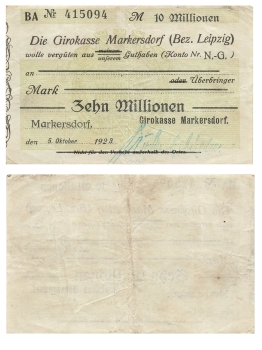 BA № 415094 M 10 Millionen
Die Girokasse Markersdorf (Bez. Leipzig)
wolle vergüten aus unserem Guthaben (Konto Nr. N.-G.)
an oder Überbringer
Mark
Zehn Millionen
Markersdorf, Girokasse Markersdorf.
den 5. Oktober 1923
Nicht für den Verkehr außerhalb des Ortes.